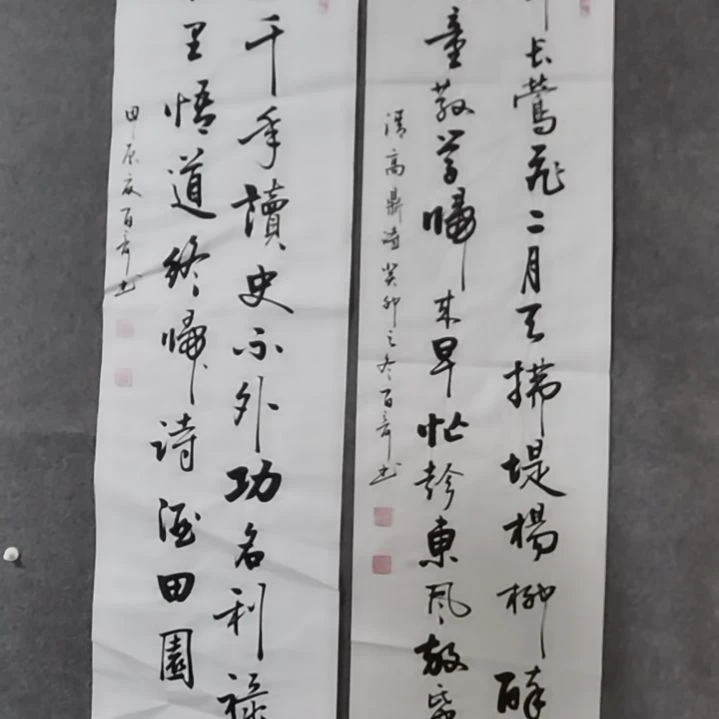 长鶯飛二月天拂堤楊柳醉
童散學歸来早忙趁東風放
清高鼎诗癸卯之冬百书
千年讀史不外功名利禄
里悟道終歸诗酒田園
甲辰夏百书